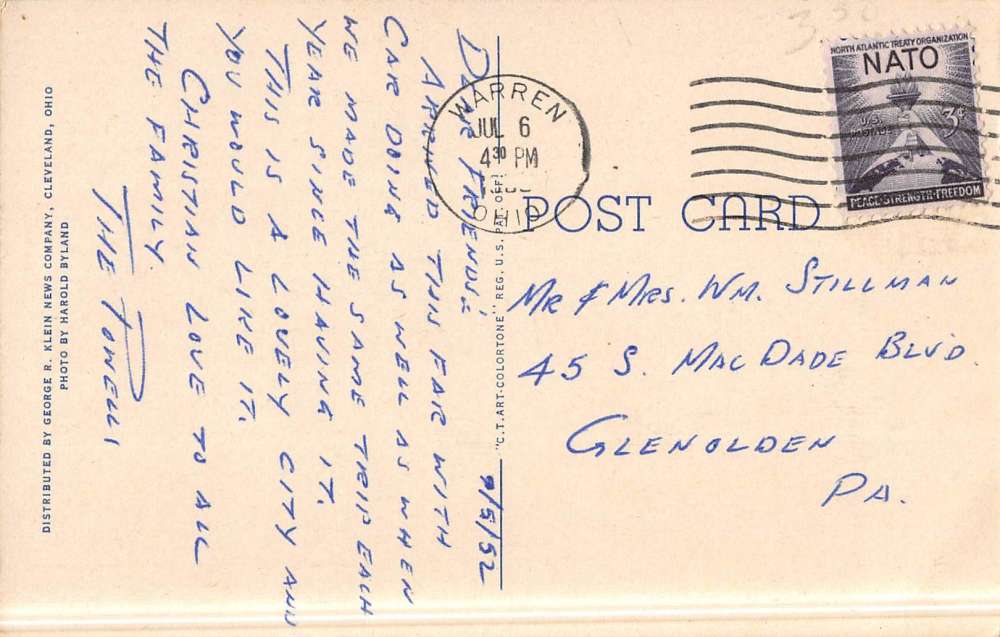 9/5/52
DEAR FRIENDS:
ARRIVED THIS FAR WITH
CAR DOING AS WELL AS WHEN
WE MADE THE SAME TRIP EACH
YEAR SINCE HAVING IT.
THIS IS A LOVELY CITY AND
YOU WOULD LIKE IT.
CHRISTIAN LOVE TO ALL
THE FAMILY.
THE
DISTRIBUTED BY GEORGE R. KLEIN NEWS COMPANY, CLEVELAND, OHIO
PHOTO BY HAROLD BYLAND
"C.T. ART-COLORTONE" REG. U.S. PAT. OFF.
WARREN
JUL 6
4 30 PM
OHIO
NORTH ATLANTIC TREATY ORGANIZATION
NATO
U.S. POSTAGE
3¢
PEACE·STRENGTH·FREEDOM
POST CARD
MR & MRS. WM. STILLMAN
45 S. MACDADE BLVD.
GLENOLDEN
PA.